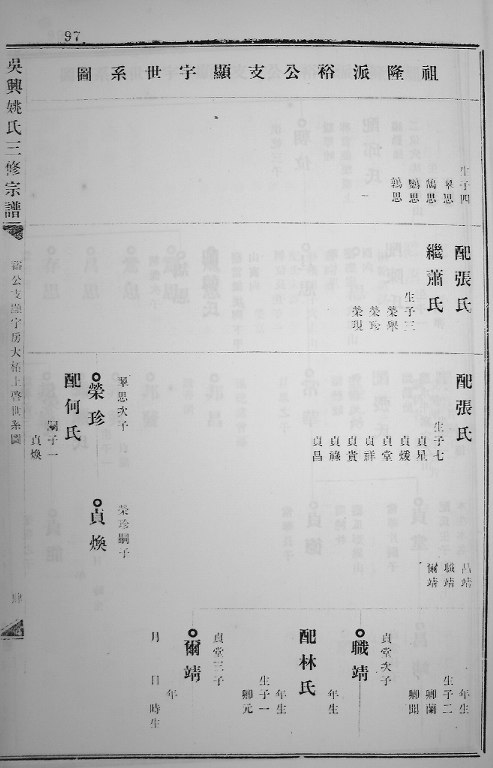 97.
祖隆派裕公支顯字世系圖
生子四
翠思
鶯思
鸚思
鵝思
配張氏
繼蕭氏
生子三
榮舉
榮珍
榮現
配張氏
生子七
貞星
貞煖
貞堂
貞祥
貞貴
貞祿
貞昌
翠思次子
榮珍
配何氏
嗣子一
貞煥
呂靖
職靖
爾靖
榮珍嗣子
貞煥
年生
生子二
卿蘭
卿開
貞堂次子
職靖
年生
配林氏
年生
生子一
卿元
貞堂三子
爾靖
年
月 日 時生
吳興姚氏三修宗譜
裕公支顯字房大柘上
世系圖
肆